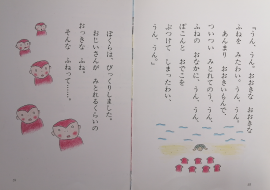 「うん、うん。おおきな おおきな
ふねを みたわい。うん、うん。
あんまり おおきいもんで、
ついつい みとれてのう。うん、
ふねの おなかに、うん、うん、
ぽこんと おでこを
ぶつけて しまったわい。
うん、うん。」
ぼくらは、びっくりしました。
おじいさんが みとれるくらいの
おっきな ふね。
そんな ふねって……。